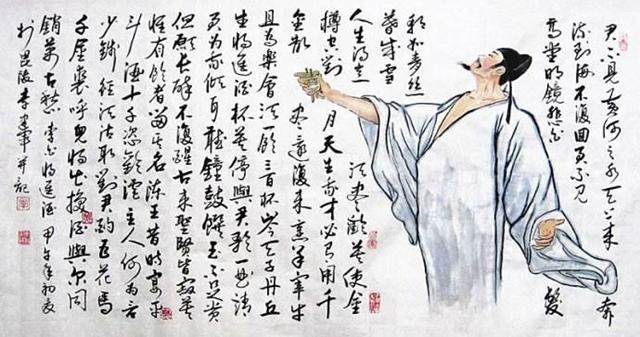 君不見黃河之水天上來奔
流到海不復回君不見
高堂明鏡悲白髮
朝如青絲
暮成雪
人生得意須盡歡莫使金
樽空對月天生我才必有用千
金散盡還復來烹羊宰牛
且為樂會須一飲三百杯岑夫子丹丘
生將進酒杯莫停與君歌一曲請
君為我傾耳聽鐘鼓饌玉不足貴
但願長醉不復醒古來聖賢皆寂寞
惟有飲者留其名陳王昔時宴平
斗酒十千恣歡謔主人何為言
少錢徑須沽取對君酌五花馬
千金裘呼兒將出換酒與爾同
銷萬古愁 李白將進酒 甲午年初夏
於毘陵李軍并記